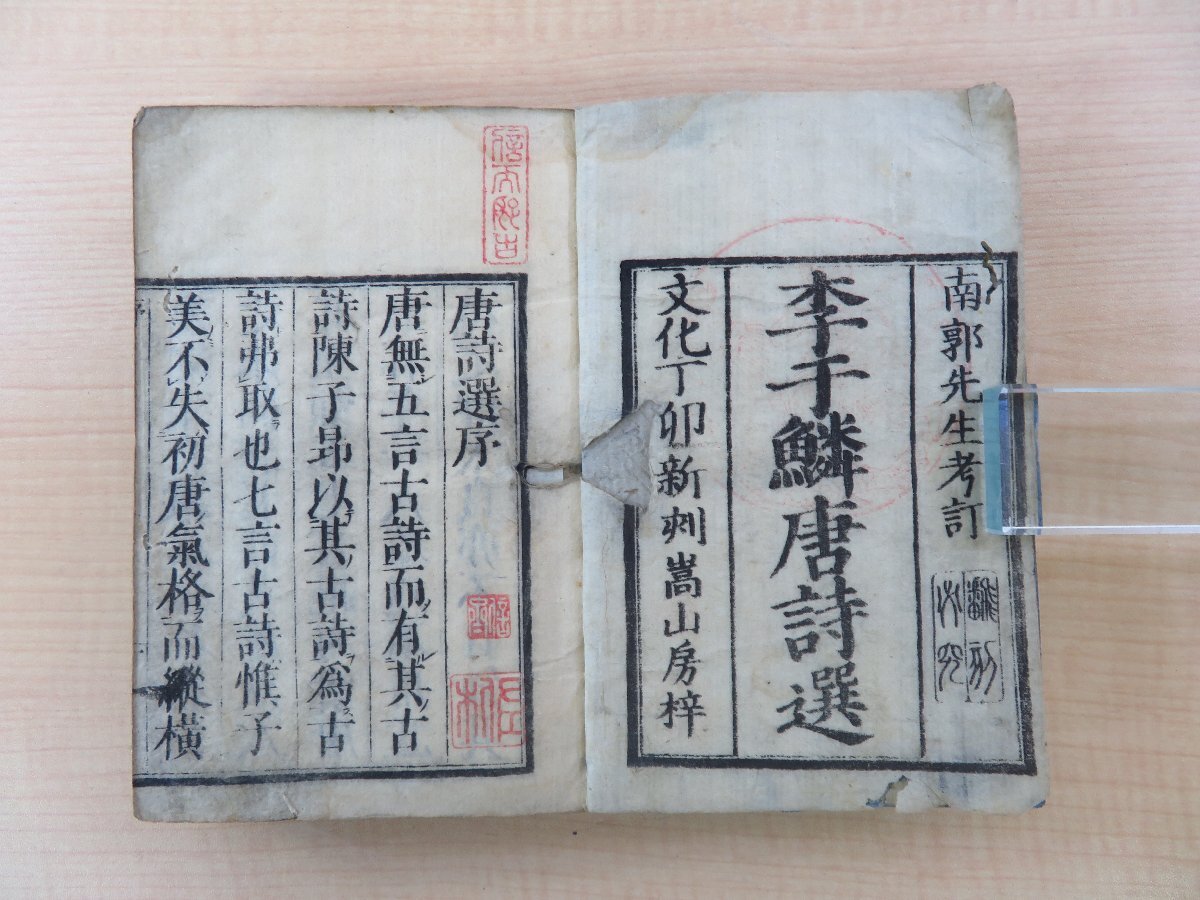 南郭先生考訂
翻刻必究
李于鱗唐詩選
文化丁卯新刋嵩山房梓
信而好古
唐詩選序
唐無五言古詩而有其古
詩陳子昻以其古詩爲古
詩弗取也七言古詩惟子
美不失初唐氣格而縱橫